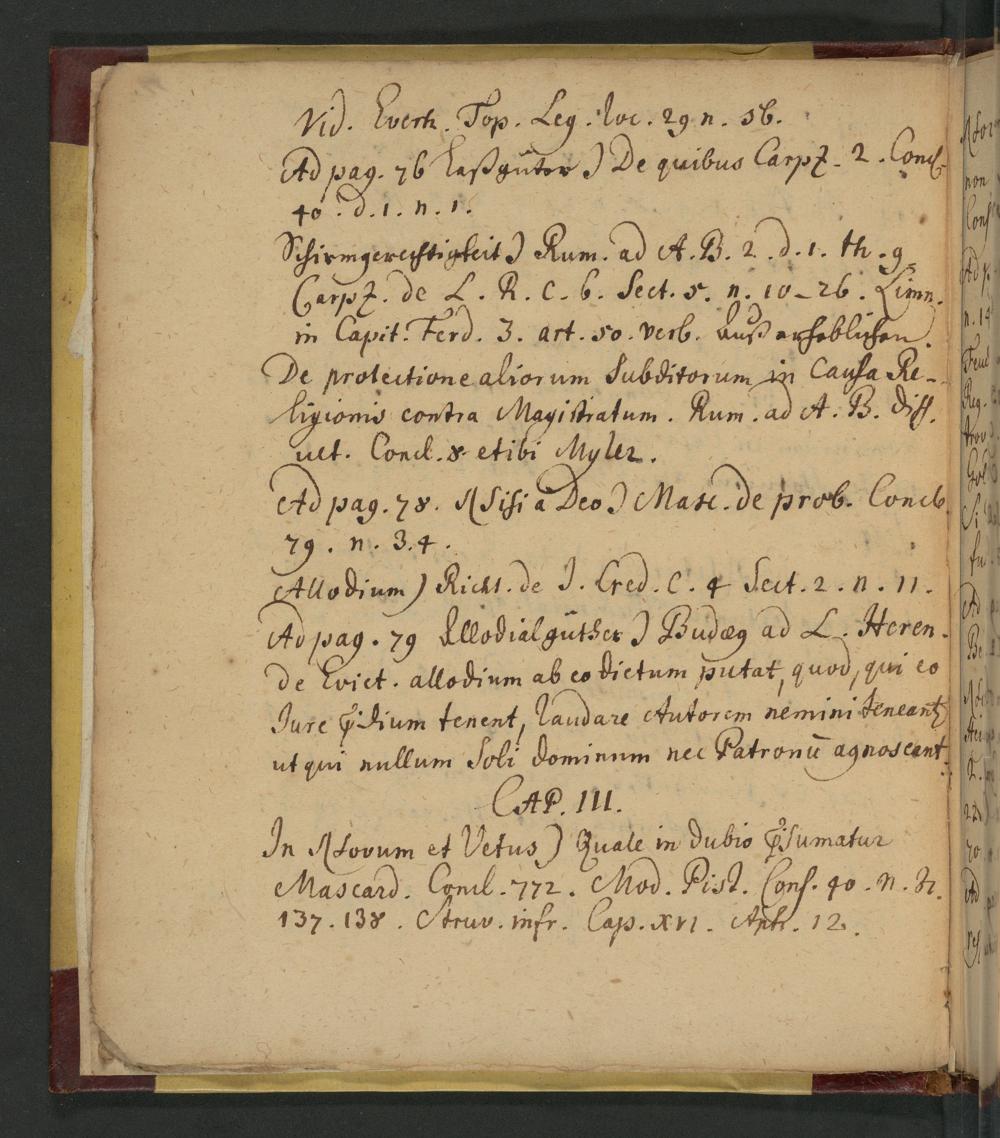 Vid. Everh. Top. Leg. loc. 29 n. 56.
Ad pag. 76 Laßgüter) De quibus Carpz. 2. Concl.
40. d. 1. n. 1.
Schirmgerechtigkeit) Rum. ad A. B. 2. d. 1. th. 9.
Carpz. de L. R. C. 6. Sect. 5. n. 10-26. Limn.
in Capit. Ferd. 3. art. 50. verb. auß erheblichen.
De protectione aliorum Subditorum in Causa Re-
ligionis contra Magistratum. Rum. ad A. B. diss.
ult. Concl. 8 et ibi Myler.
Ad pag. 78. Nisi a Deo) Masc. de prob. Concl.
79. n. 3. 4.
Allodium) Richt. de J. Cred. C. 4 Sect. 2. n. 11.
Ad pag. 79 Allodialgüther) Budæg ad L. Heren.
de Evict. allodium ab eo dictum putat, quod, qui eo
Jure p̄dium tenent, laudare Autorem nemini teneantʒ
ut qui nullum Soli dominum nec Patronū agnoscant.
CAP. III.
In Novum et Vetus) Quale in dubio p̄sumatur
Mascard. Concl. 772. Mod. Pist. Cons. 40. n.
137. 138. Struv. infr. Cap. XVI. Aph. 12.